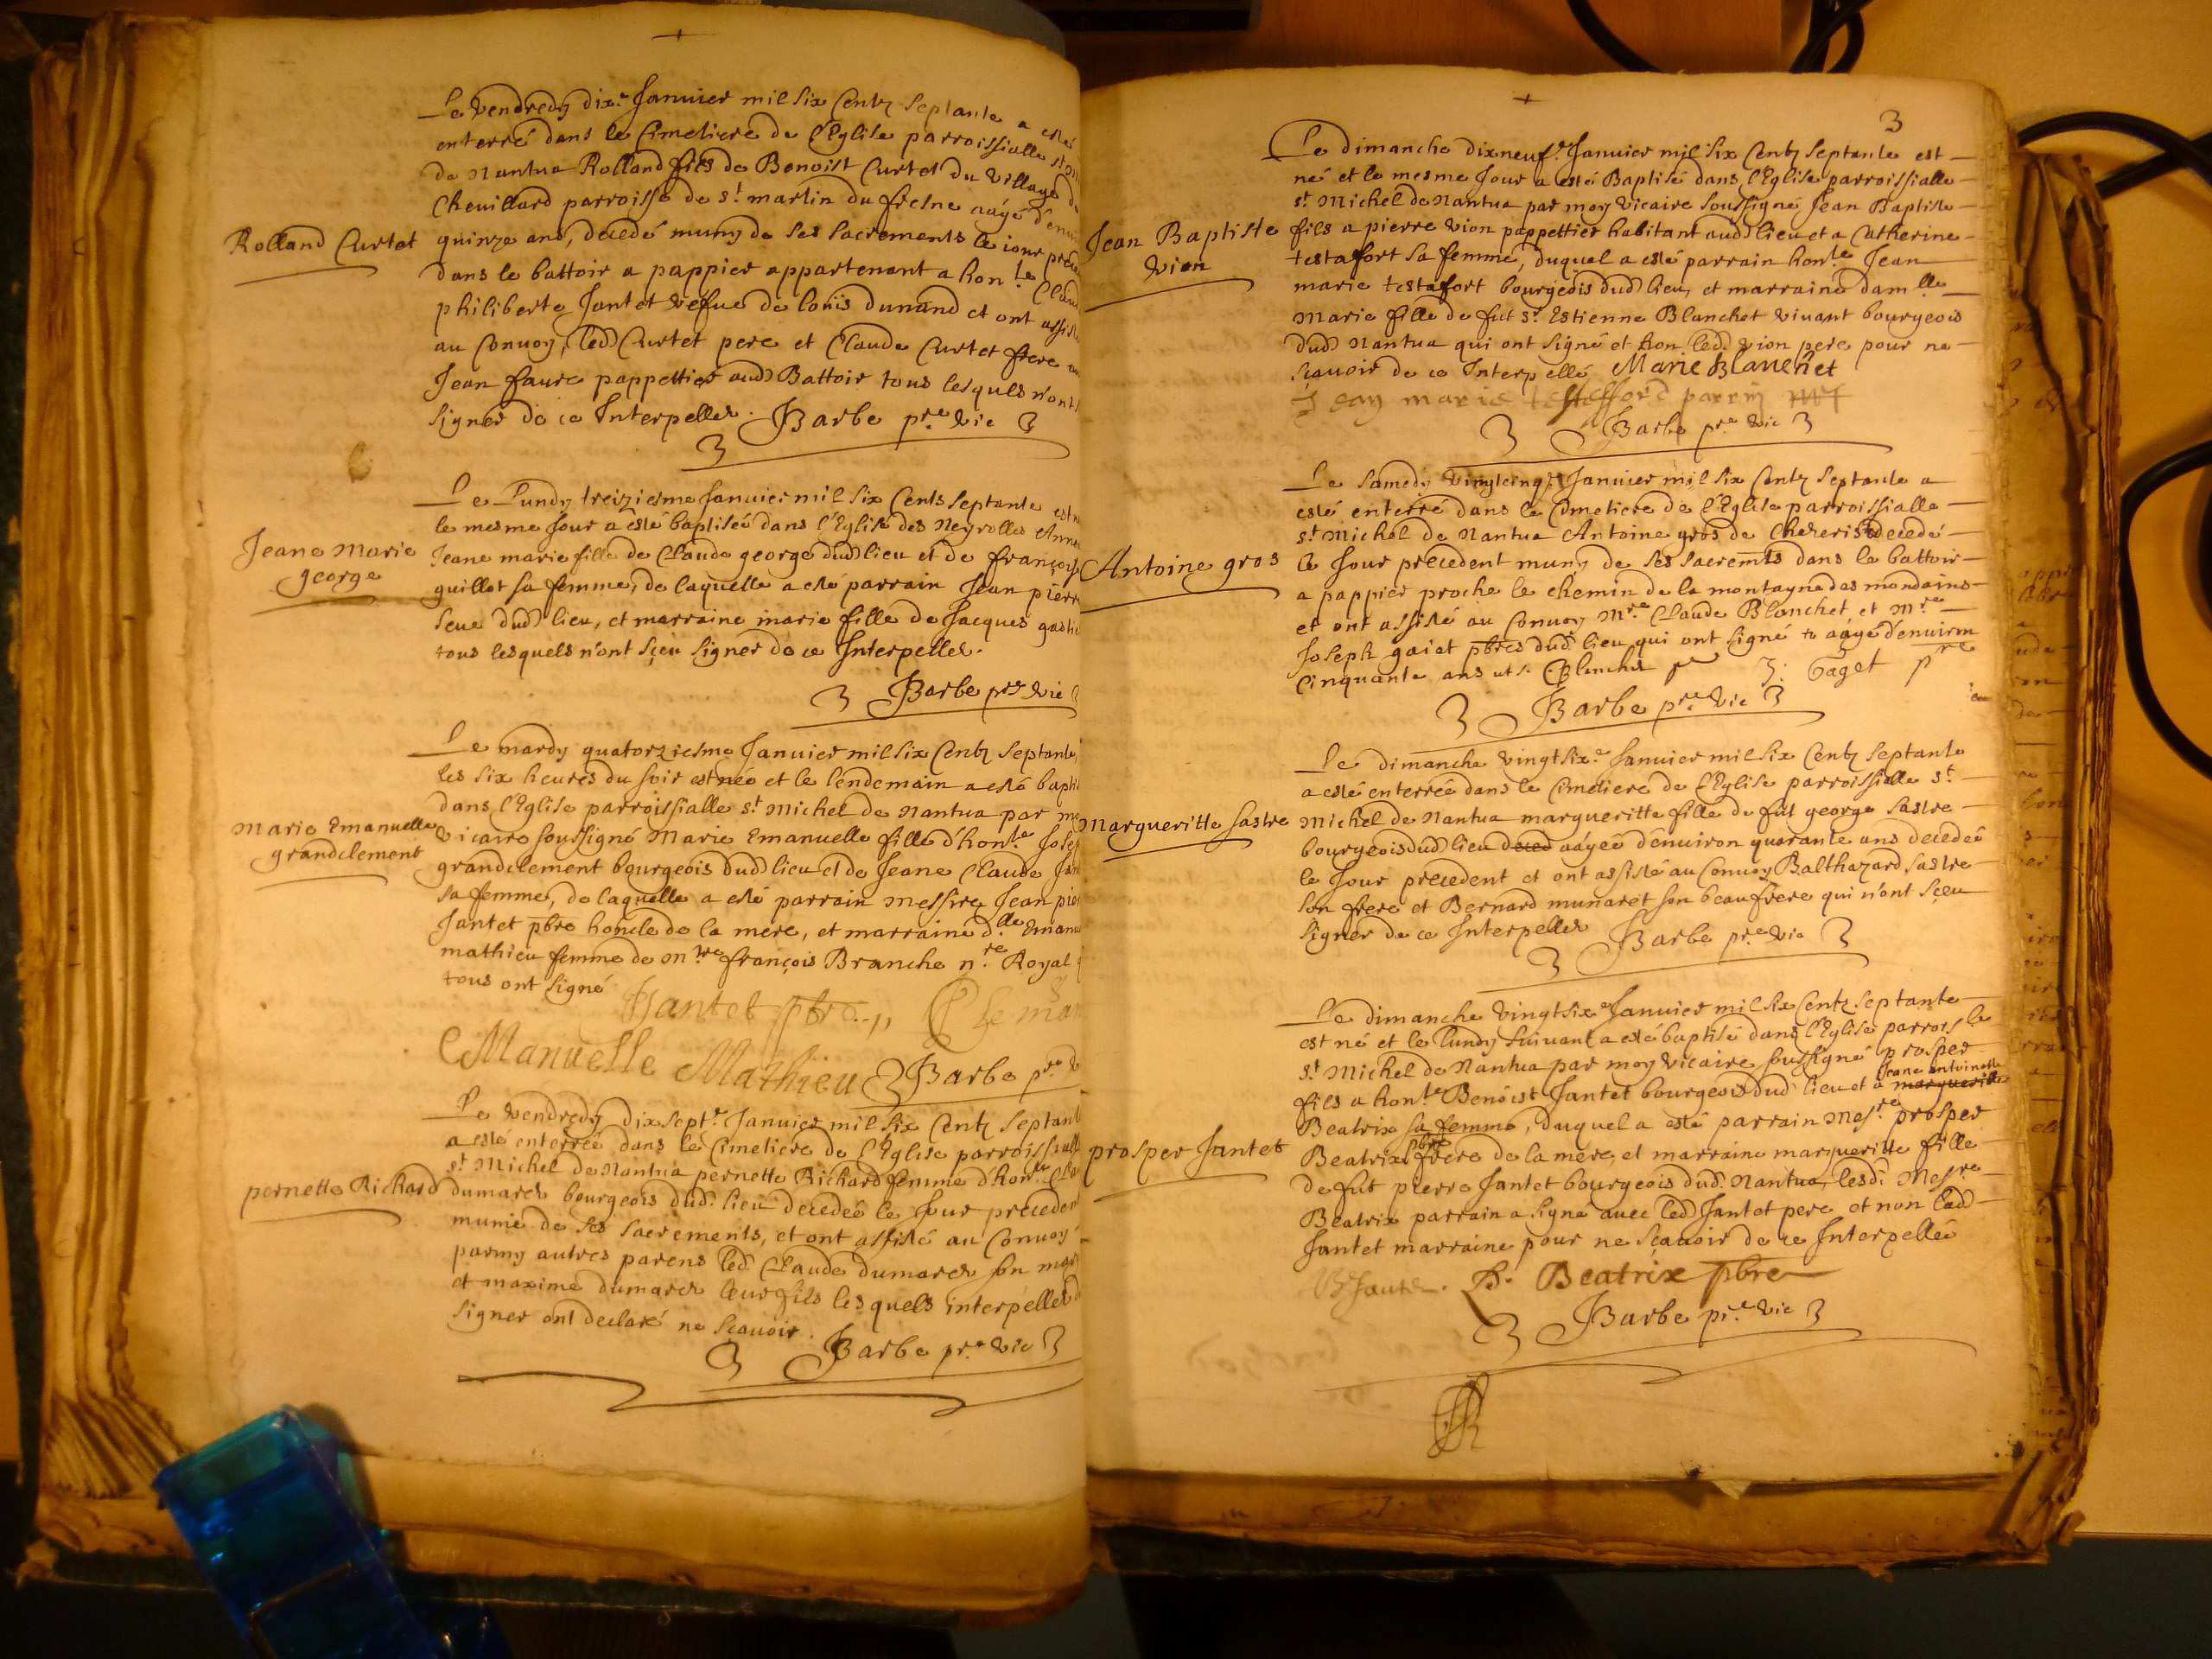 Le vendredy dix.e Januier mil six Centz septante a esté
enterré dans le Cimetiere de l'Eglise parroissialle st
de Nantua Rolland fils de Benoist Curtet du village de
Cheuillard parroisse de st. martin du fresne aagé d'enui
Rolland Curtet
quinze ans, decedé muny de ses sacrements le iour prece
dans le battoir a pappier appartenant a hon.te Claud
philiberte Jantet vefue de loüis dunand et ont assisté
au Conuoy, led Curtet pere et Claude Curtet frere
Jean faure pappettier aud Battoir tous lesquels n'ont
signer de ce Interpellez. Barbe pre vic
Le Lundy treiziesme Januier mil six Cents septante est
le mesme Jour a esté baptisée dans l'Eglise des Neyrolles Anne
Jeane Marie george
Jeane marie fille de Claude george dud lieu et de françoys
guillot sa femme, de laquelle a esté parrain Jean pierre
seue dud lieu, et marraine marie fille de Jacques
tous lesquels n'ont sçeu signer de ce Interpellez.
Barbe pre vic
Le mardy quatorziesme Januier mil six Centz septante,
les six heures du soir est née et le lendemain a esté bapti
dans l'Eglise parroissialle st Michel de Nantua par mo
Marie Emanuelle grandclement
vicaire soussigné Marie Emanuelle fille d'hon.te Josep
grandclement bourgeois dud lieu et de Jeane Claude Jan
sa femme, de laquelle a esté parrain messire Jean pie
Jantet pbre honcle de la mere, et marraine d.lle Emanu
mathieu femme de m.tre françois Branche n.re Royal
tous ont signé
Jantet pbre
Manuelle Mathieu Barbe pre
Le vendredy dixsept.e Januier mil six Centz septant
a esté enterrée dans le Cimetiere de l'Eglise parroissialle
st Michel de Nantua pernette Richard femme d'hon.te Cla
pernette Richard
dumarez bourgeois dud. lieu decedée le Jour preceden
munie de ses sacrements, et ont assisté au Conuoy
parmy autres parens led. Claude dumarez son mary
et maxime dumarez leur fils lesquels interpellez
signer ont declaré ne sçauoir. Barbe pre vic
3
Le dimanche dixneuf.e Januier mil six Centz septante est
né et le mesme Jour a esté Baptisé dans l'Eglise parroissialle
st. Michel de Nantua par moy vicaire soussigné Jean Baptiste
Jean Baptiste vion
fils a pierre vion pappettier habitant aud lieu et a Catherine
testafort sa femme, duquel a esté parrain hon.te Jean
marie testafort bourgeois dud lieu, et marraine dam.lle
Marie fille de fut sr. Estienne Blanchet viuant bourgeois
dud Nantua qui ont signé et non led. vion pere pour ne
sçauoir de ce Interpellé Marie Blanchet
Jean marie parrin
Barbe pre vic
Le samedy vingtcinq.e Januier mil six Centz septante a
esté enterré dans le Cimetiere de l'Eglise parroissialle
st. Michel de Nantua Antoine gros de decedé
Antoine gros
le Jour precedent muny de ses sacremts dans le battoir
a pappier proche le chemin de la montagne des mondains
et ont assisté au Conuoy M.re Claude Blanchet, et M.re
Joseph gaiet pbres dud. lieu qui ont signé aagé d'enuiron
Cinquante ans Blanchet J. Gaget pre
Barbe pre vic
Le dimanche vingtsix.e Januier mil six Centz septante
a esté enterrée dans le Cimetiere de l'Eglise parroissialle st.
Margueritte sastre
Michel de Nantua margueritte fille de fut george sastre
bourgeois dud lieu deced aagée d'enuiron quarante ans decedeé
le Jour precedent et ont assisté au Conuoy Balthazard sastre
son frere et Bernard munaret son beaufrere qui n'ont sçeu
signer de ce Interpellez Barbe pre vic
Le dimanche vingtsix.e Januier mil six Centz septante
est né et le Lundy suiuant a esté baptisé dans l'Eglise parrois.le
st Michel de Nantua par moy vicaire soussigné prosper
Jeane antoinette
fils a hon.te Benoist Jantet bourgeois dud lieu et a margueritte
Beatrix sa femme, duquel a esté parrain Mes.re prosper
prosper Jantet
Beatrix pbre frere de la mere, et marraine margueritte fille
de fut pierre Jantet bourgeois dud. Nantua, lesd. Mes.re
Beatrix parrain a signé auec led Jantet pere et non lad
Jantet marraine pour ne sçauoir de ce Interpellée
P. Beatrix pbre
Barbe pre vic